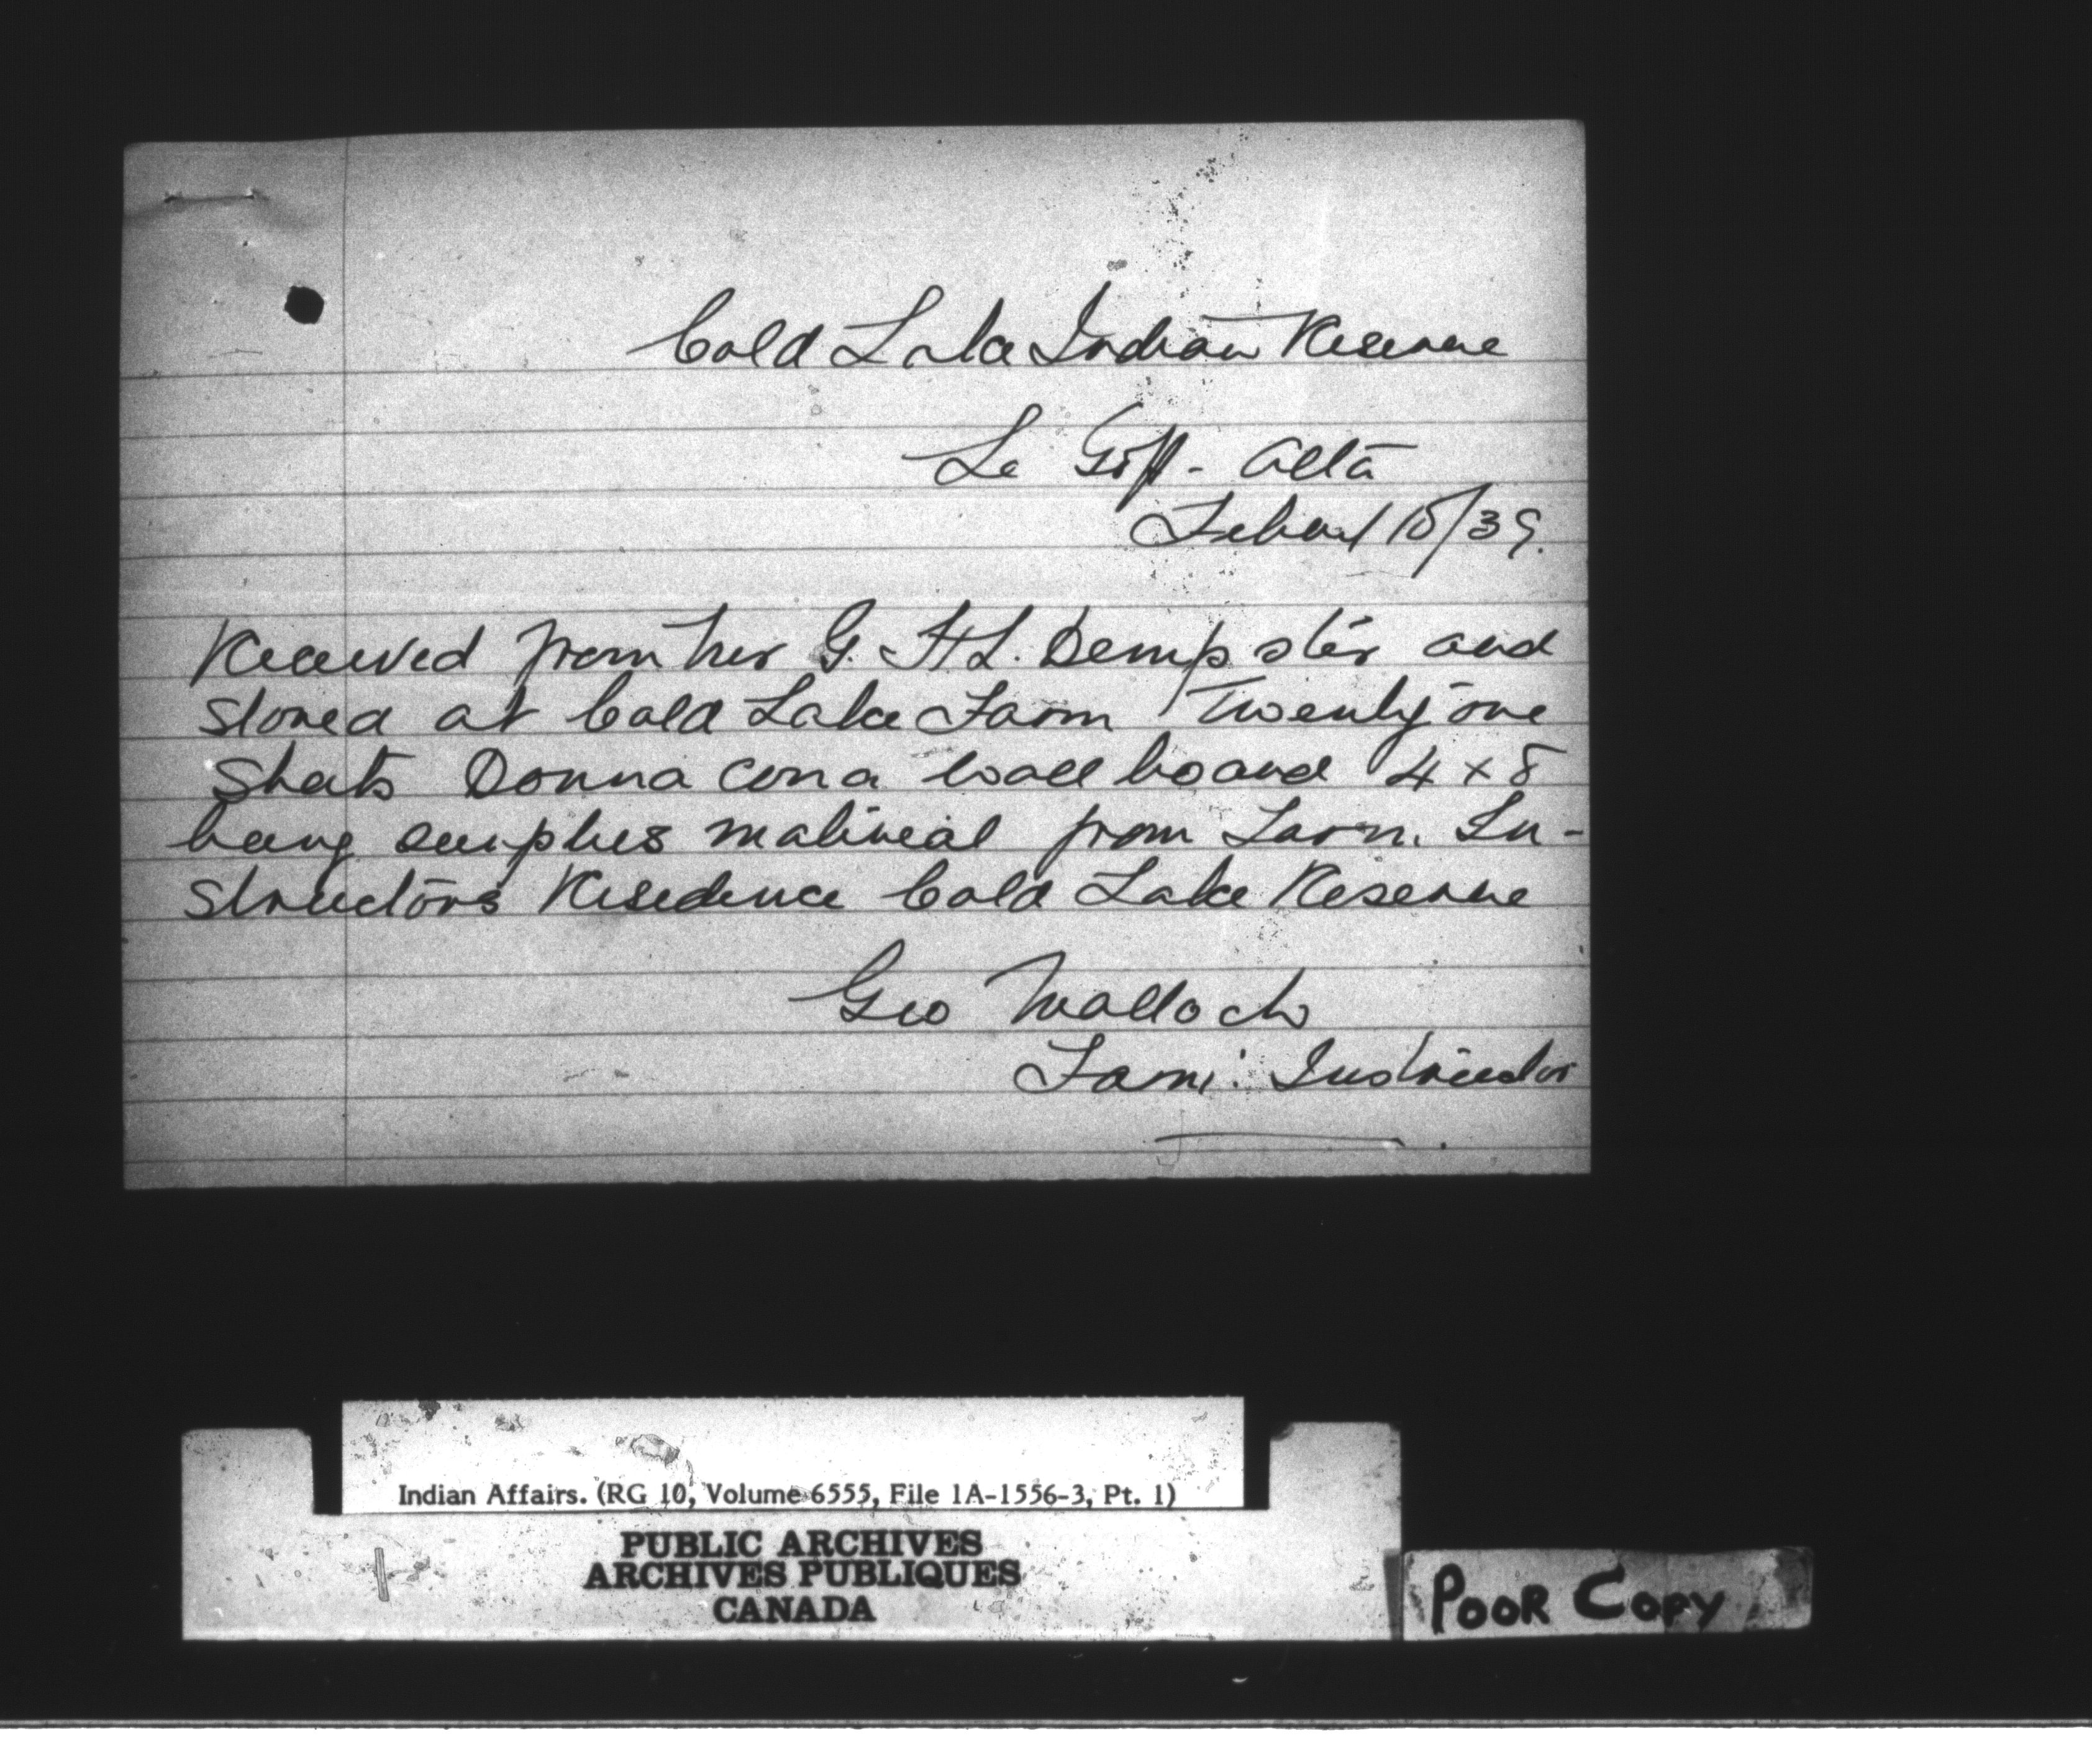 Cold Lake Indian Reserve
Le Goff - Alta
Received from Mr G. H L. Dempster and
stored at Cold Lake Farm Twenty one
Sheets Donna cona wall board 4 x 8
being surplus material from Farm. In-
structors Residence Cold Lake Reserve
Geo Malloch
Farm. Instructor
Indian Affairs. (RG 10, Volume 6555, File 1A-1556-3, Pt. 1)
PUBLIC ARCHIVES
ARCHIVES PUBLIQUES
CANADA
POOR COPY